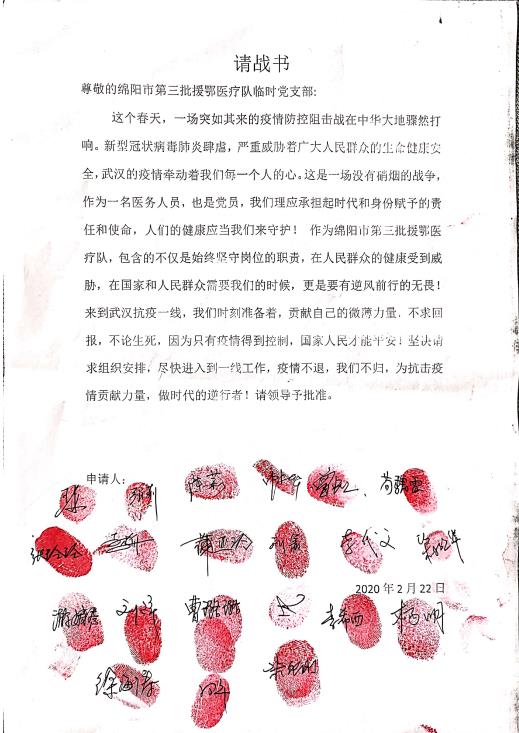 请战书
尊敬的绵阳市第三批援鄂医疗队临时党支部:
这个春天，一场突如其来的疫情防控阻击战在中华大地骤然打
响。新型冠状病毒肺炎肆虐，严重威胁着广大人民群众的生命健康安
全，武汉的疫情牵动着我们每一个人的心。这是一场没有硝烟的战争，
作为一名医务人员，也是党员，我们理应承担起时代和身份赋予的责
任和使命，人们的健康应当我们来守护！ 作为绵阳市第三批援鄂医
疗队，包含的不仅是始终坚守岗位的职责，在人民群众的健康受到威
胁，在国家和人民群众需要我们的时候，更是要有逆风前行的无畏！
来到武汉抗疫一线，我们时刻准备着，贡献自己的微薄力量，不求回
报，不论生死，因为只有疫情得到控制，国家人民才能平安！坚决请
求组织安排，尽快进入到一线工作，疫情不退，我们不归，为抗击疫
情贡献力量，做时代的逆行者！请领导予批准。
申请人：
2020 年 2 月 22 日
杨明